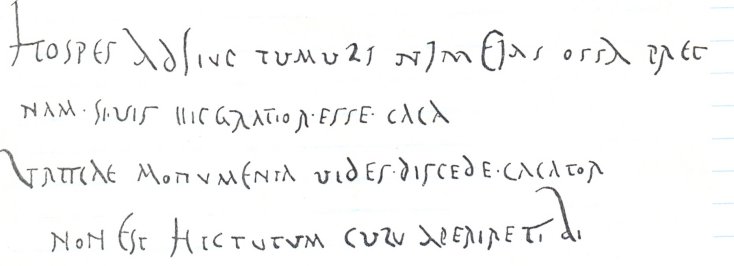 HOSPES ADHVC TVMVLI NI MEIAS OSSA PREC
NAM·SI·VIS HVIC GRATIOR·ESSE·CACA
VRTICAE MONVMENTA VIDES·DISCEDE·CACATOR
NON EST HIC TVTVM CVLV APERIRE TIBI